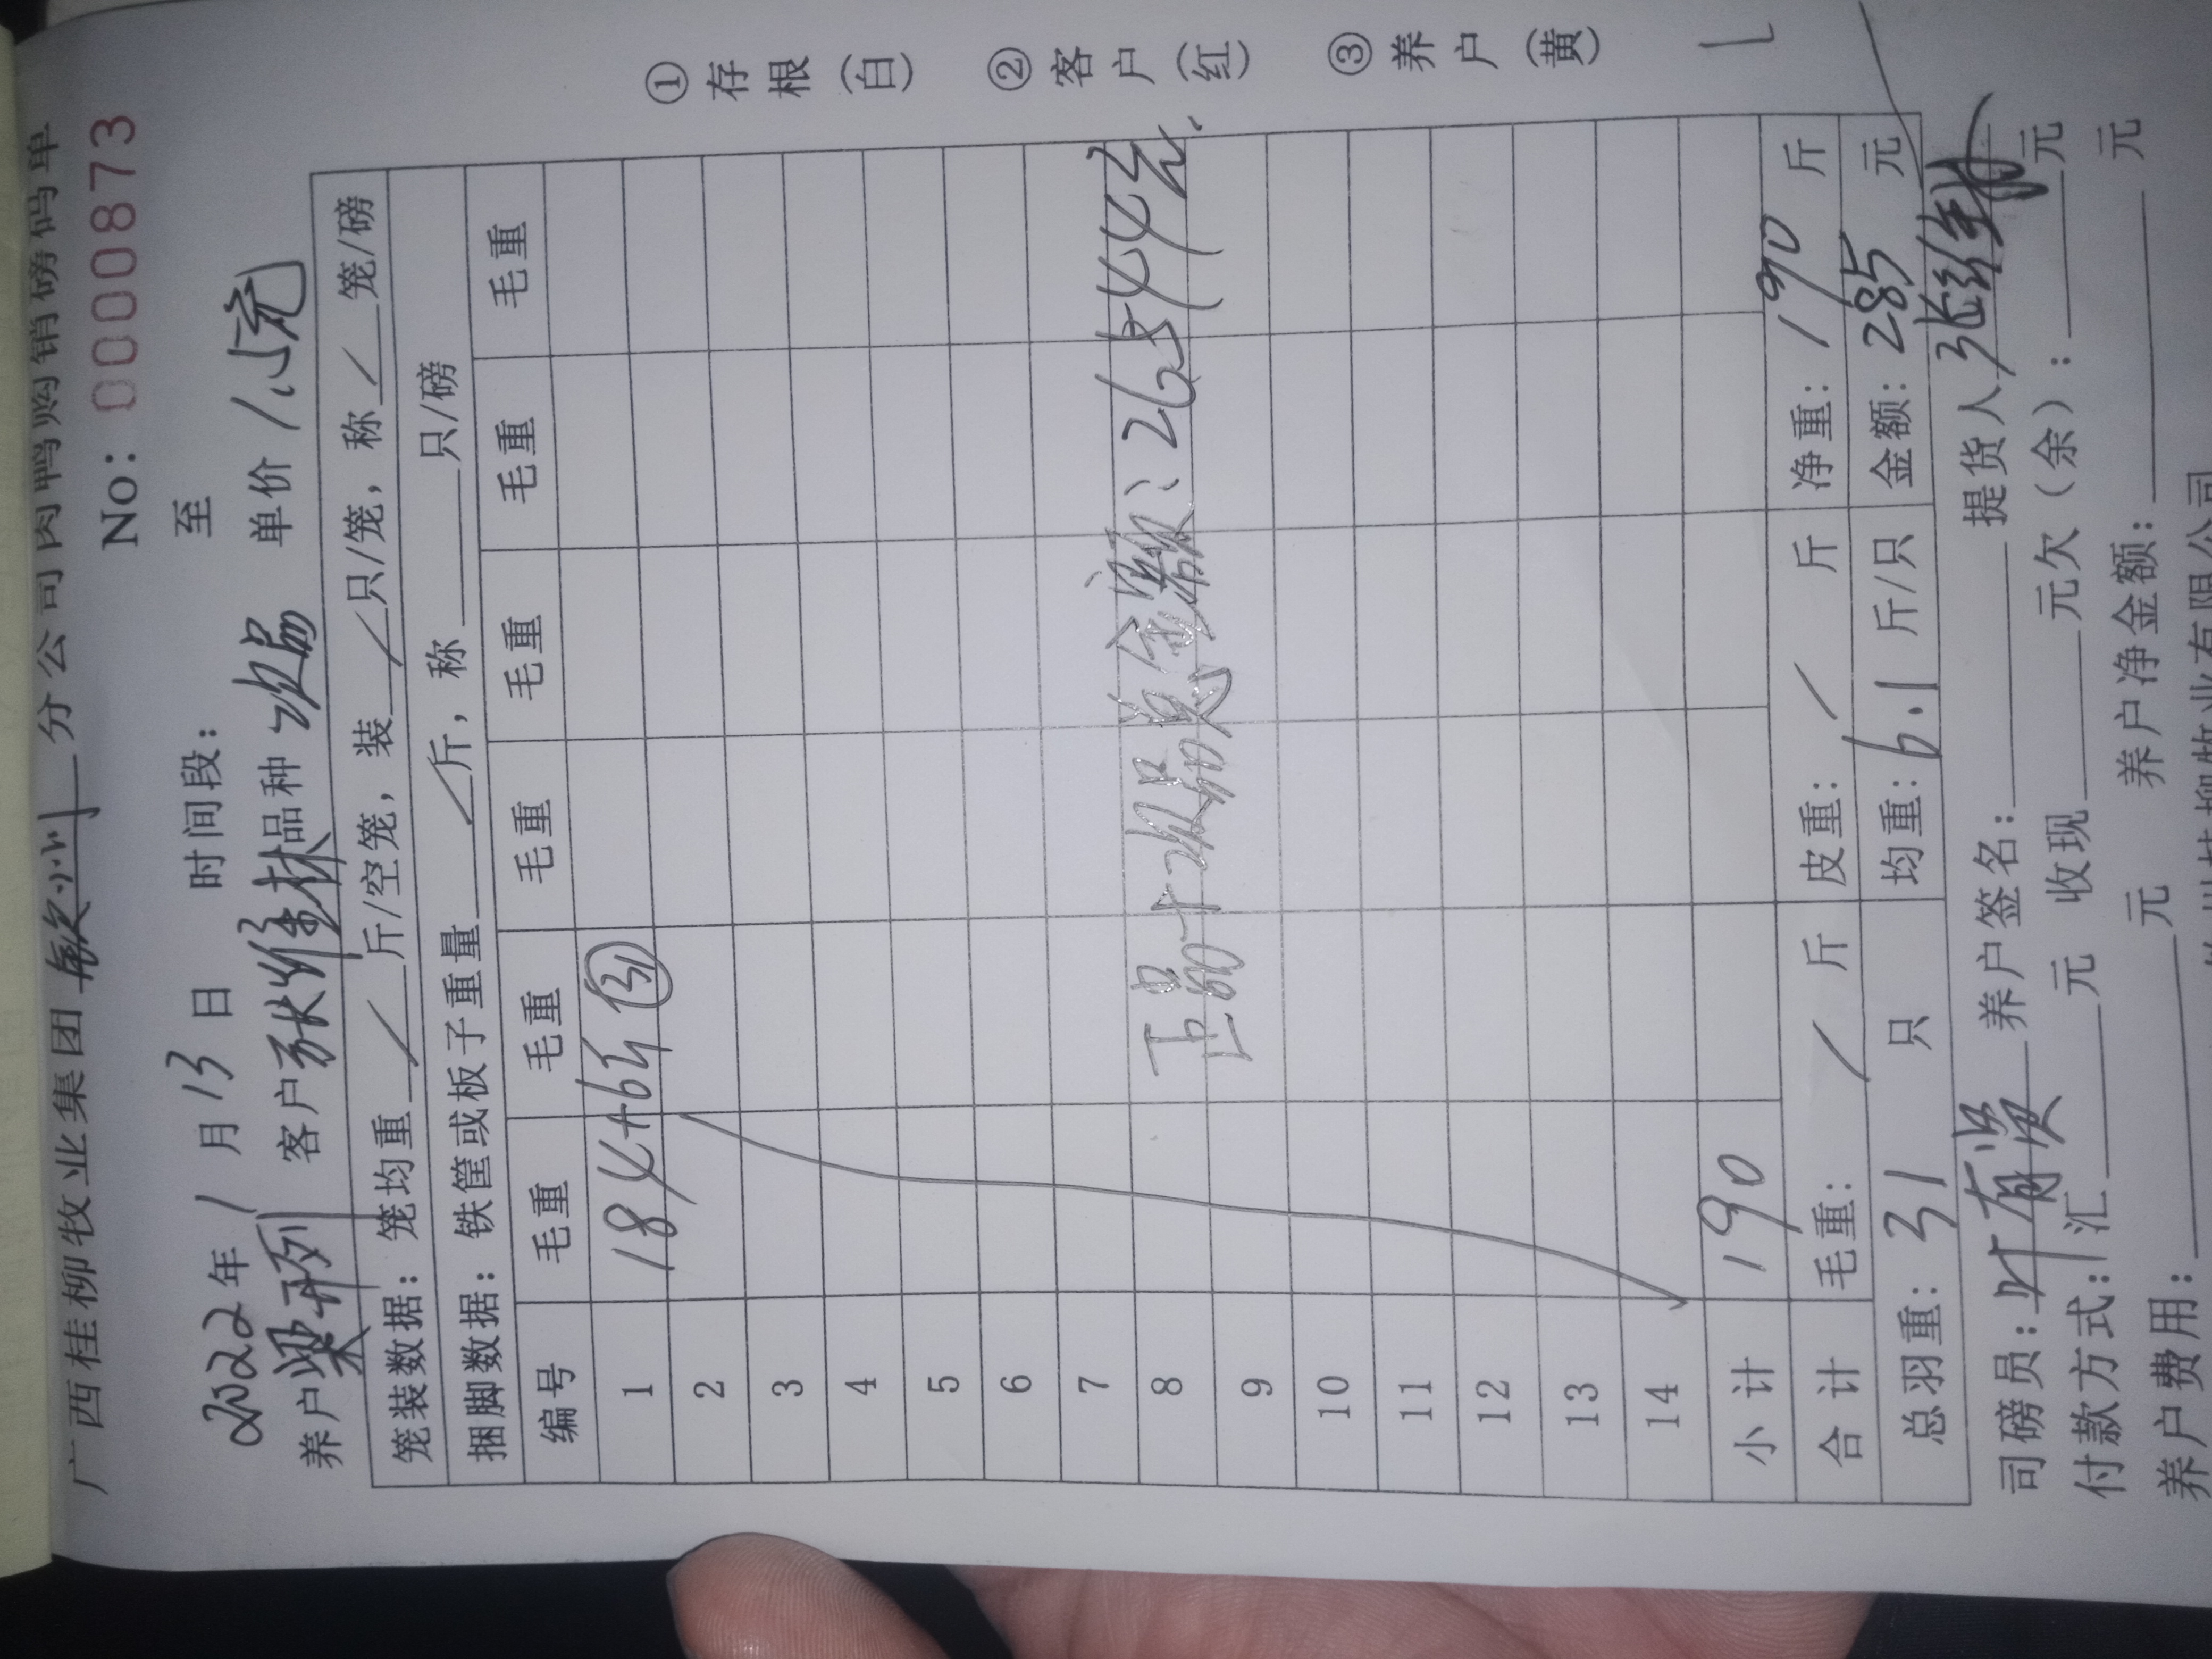 广西桂柳牧业集团 钦州 分公司肉鸭购销磅码单
No: 0000873
2022年 1 月 13 日 时间段: 至
养户 梁开列 客户 张维林 品种 次品 单价 1.5元
笼装数据: 笼均重 / 斤/空笼, 装 / 只/笼, 称 / 笼/磅
捆脚数据: 铁筐或板子重量 / 斤, 称 只/磅
编号 毛重 毛重 毛重 毛重 毛重 毛重
1 184+6斤 (31)
2
3
4
5
6
7
8 正品+次品总金额: 26544元.
9
10
11
12
13
14
小计 190
合计 毛重: / 斤 皮重: / 斤 净重: 190 斤
总羽重: 31 只 均重: 6.1 斤/只 金额: 285 元
司磅员: 叶有 养户签名: 提货人 张维林
付款方式: 汇 元 收现 元欠(余): 元
养户费用: 元 养户净金额: 元
牧业有限公司
①存根(白) ②客户(红) ③养户(黄)